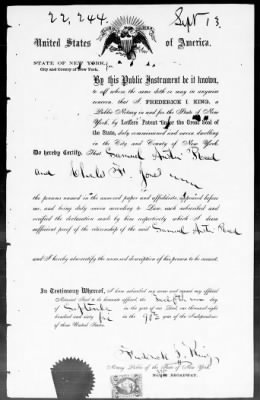 22,244. Sept 13
United States of America.
STATE OF NEW YORK,
City and County of New York.
By this Public Instrument be it known,
to all whom the same doth or may in anywise
concern, that I FREDERICK I. KING, a
Public Notary in and for the State of New
York, by Letters Patent under the Great Seal of
the State, duly commissioned and sworn, dwelling
in the City and County of New York,
Do hereby Certify, That Samuel Read
and Charles
the persons named in the annexed paper and affidavits, appeared before
me, and being duly sworn according to Law, each subscribed and
verified the declaration made by him respectively which I deem
sufficient proof of the citizenship of the said Samuel Read
and I hereby also certify the annexed description of his person to be correct.
In Testimony Whereof, I have subscribed my name and caused my official
Notarial Seal to be hereunto affixed the Twelfth day
of September in the year of our Lord, one thousand eight hundred
and sixty five in the 90th year of the Independence
of these United States.
Frederick I. King
Notary Public of the State of New York.
BROADWAY.